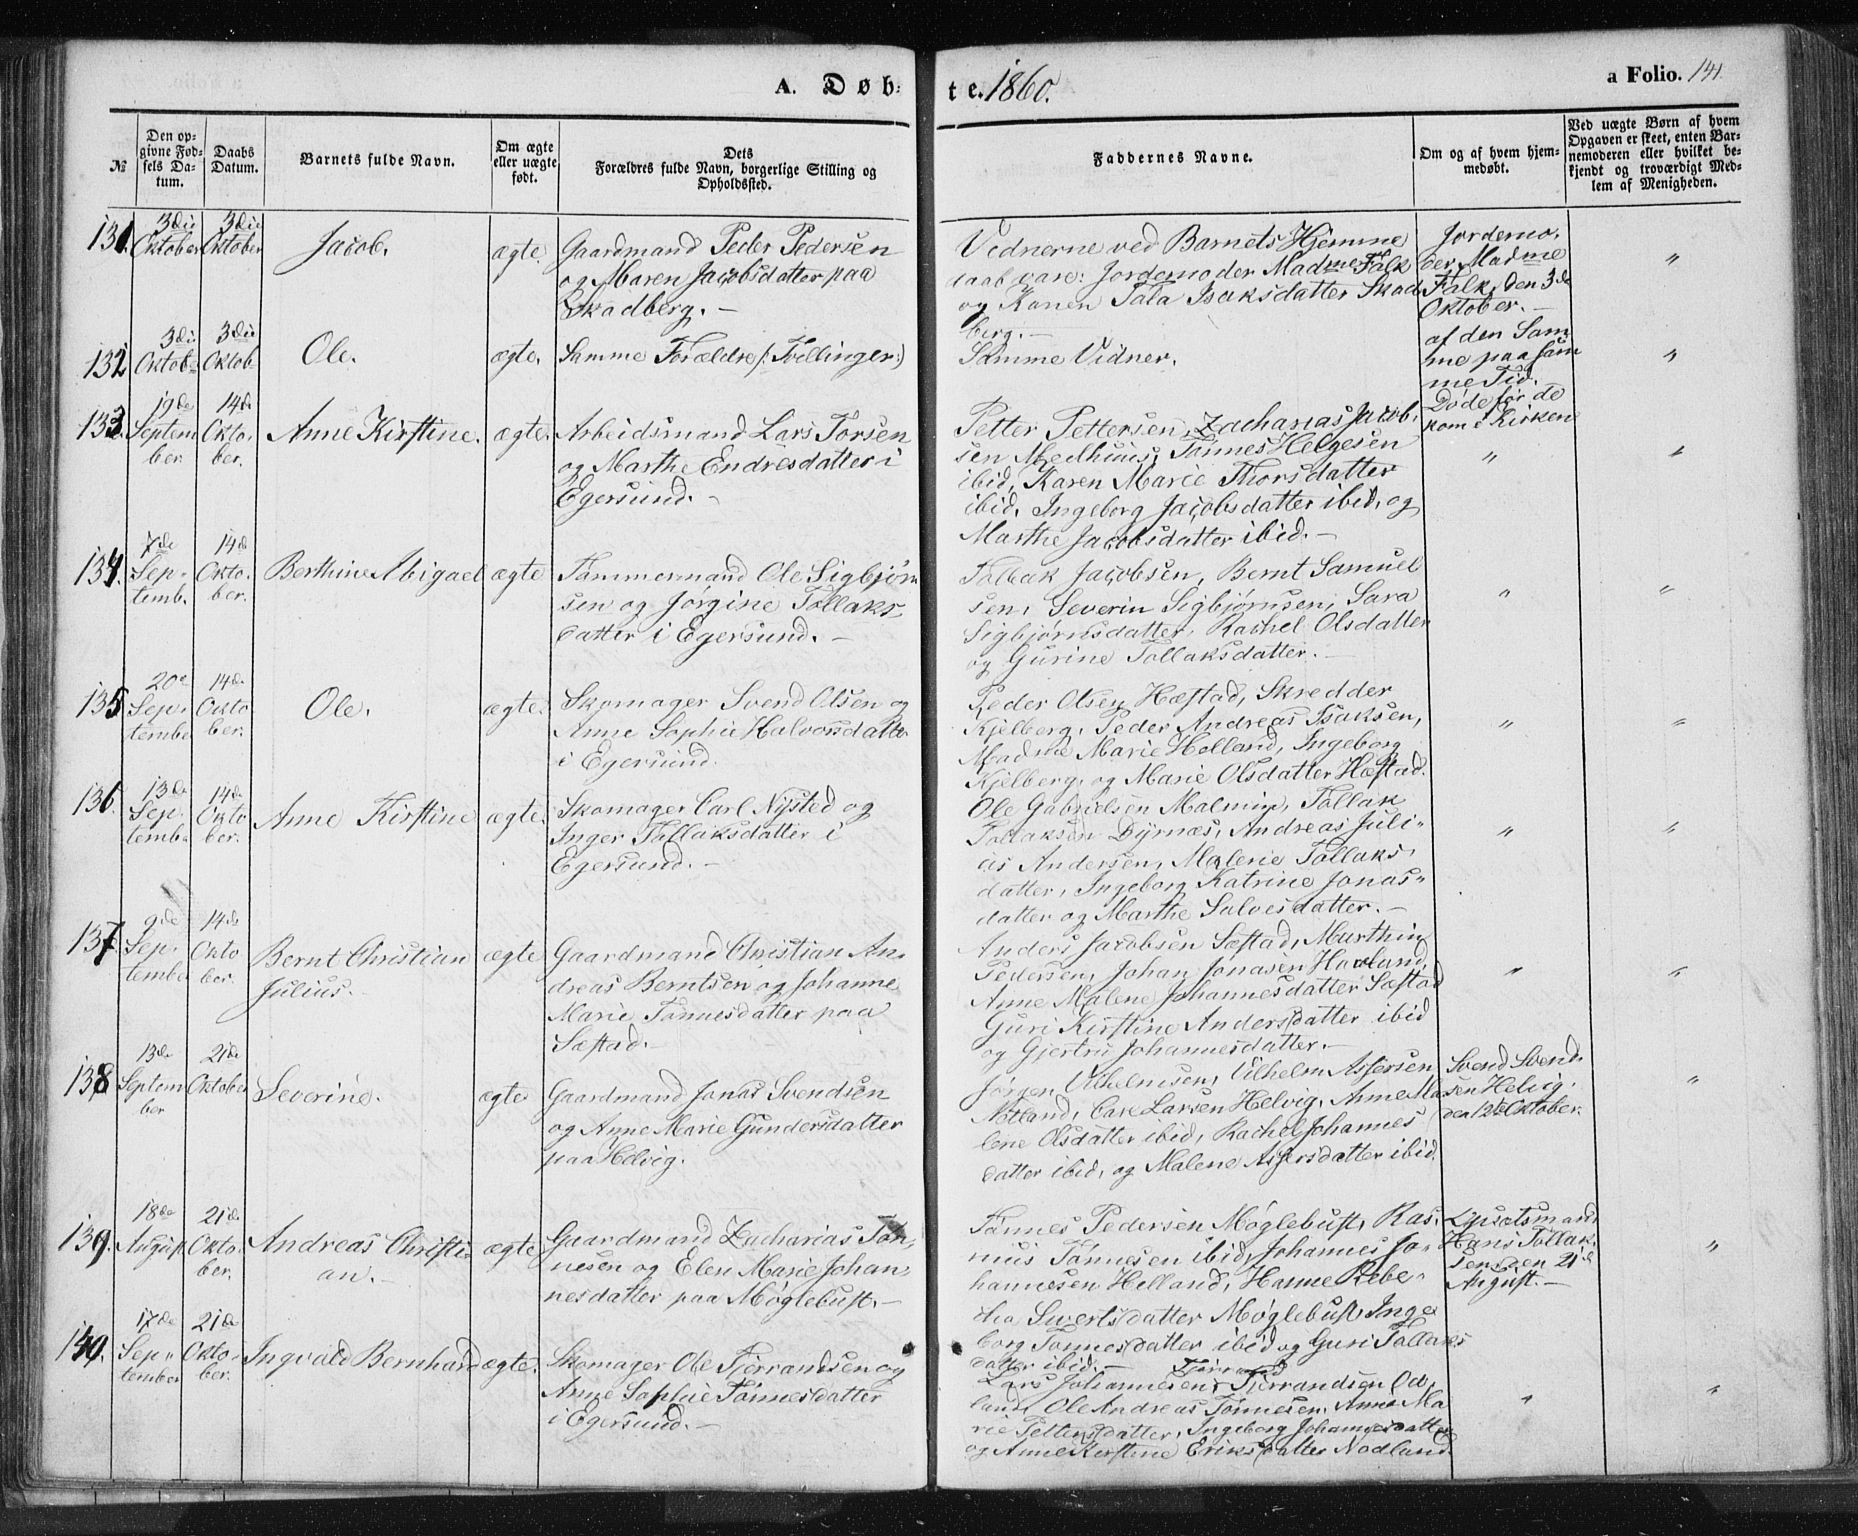 A. Døb=
te. 1860.
a Folio. 141.
№
Den op=
givne Fød=
sels Da=
tum.
Daabs
Datum.
Barnets fulde Navn.
Om ægte
eller uægte
født.
Dets
Forældres fulde Navn, borgerlige Stilling og
Opholdssted.
Faddernes Navne.
Om og af hvem hjem=
medøbt.
Ved uægte Børn af hvem
Opgaven er skeet, enten Bar=
nemoderen eller hvilket be=
kjendt og troværdigt Med=
lem af Menigheden.
131.
3die
Oktober
3die
Oktober
Jacob.
ægte.
Gaardmand Peder Pedersen
og Maren Jacobsdatter paa
Skadberg. –
Vidnerne ved Barnets Hjemme
daab vare: Jordemoder Madme Falk
og Konen Tala Isaksdatter Skad
berg. –
Jordemo.
der Madme
Falk, den 3de
Oktober. –
"
132
3die
Oktob
3die
Oktob
Ole.
ægte.
Samme Forældre (: Tvillinger:)
Samme Vidner.
af den Sam
me paa sam
me Tid.
Døde før de
kom i Kirken
"
133.
19de
Septem
ber.
14de
Okto.
ber.
Anne Kirstine.
ægte.
Arbeidsmand Lars Torsen
og Marthe Endresdatter i
Egersund. –
Petter Pettersen, Zacharias Jacob,
sen Medhuus, Tønnes Helgesen
ibid, Karen Marie Thorsdatter
ibid, Ingeborg Jacobsdatter ibid, og
Marthe Jacobsdatter ibid. –
"
"
134.
7de
Sep-
temb.
14de
Okto.
ber.
Berthine Abigael
ægte
Tømmermand Ole Sigbjørn
sen og Jørgine Tollaks
datter i Egersund. –
Tollak Jacobsen, Bernt Samuel
sen, Severin Sigbjørnsen, Sara
Sigbjørnsdatter, Rachel Olsdatter
og Gurine Tollaksdatter. –
"
"
135
20de
Sep.
tembe
14de
Okto
ber.
Ole.
ægte.
Skomager Svend Olsen og
Anne Sophie Halvorsdatte
i Egersund.
Peder Olsen Hæstad, Skredder
Kjelberg, Peder Andreas Isaksen,
Madme Marie Holland, Ingeborg
Kjelberg, og Marie Olsdatter Hæstad.
"
"
136.
13de
Sep.
tembe
14de
Okto
ber.
Anne Kirstine
ægte.
Skomager Carl Nysted og
Inger Tollaksdatter i
Egersund. –
Ole Gabrielsen Malmin, Tollak
Tollaksen Dyrnæs, Andreas Juli"
us Andersen, Malene Tollaks,
datter, Ingeborg Katrine Jonas"
datter og Marthe Salvesdatter. –
"
"
137.
9de
Sep.
tembe
14de
Okto
ber.
Bernt Christian
Julius. –
ægte
Gaardmand Christian An,
dreas Berntsen og Johanne
Marie Tønnesdatter paa
Sæstad. –
Anders Jacobsen Sæstad, Marthin
Pedersen, Johan Jonasen Havland,
Anne Malene Johannesdatter Sæstad
Guri Kirstine Andersdatter ibid
og Gjertru Johannesdatter. –
"
"
138
13de
Septem
ber
21de
Oktober
Severine.
ægte
Gaardmand Jonas Svendsen
og Anne Marie Gundersdatter
paa Helvig.
Jørgen Vilhelmsen, Vilhelm Asgersen
Netland, Carl Larsen Helvig, Anne Ma
lene Olsdatter ibid, Rachel Johannes
datter ibid, og Malene Asgersdatter ibid.
Svend Svend.
sen Helvig,
den 12te Oktober.
"
139.
18de
August
21de
Okto-
ber.
Andreas Christi-
an. –
ægte
Gaardmand Zacharias Tøn
nesen og Elen Marie Johan,
nesdatter paa Møglebust. –
Tønnes Pedersen Møglebust, Ras.
mus Tønnesen ibid, Johannes Jo-
hannesen Helland, Hanne Rebe-
kka Sivertsdatter Møglebust, Inge
borg Tønnesdatter ibid og Guri Tollaks
datter ibid. –
Opsatsmand
Hans Tollak.
sen den 21de
August. –
"
140.
17de
Sep"
tember
21de
Okto-
ber.
Ingvald Bernhard
ægte.
Skomager Ole Tjerrandsen og
Anne Sophie Tønnesdatter
i Egersund. –
Lars Johannesen, Tjerrandsen Od,
land, Ole Andreas Tønnesen, Anne Ma
rie Pettersdatter, Ingeborg Johannesdatter
og Anne Kirstine Eriksdatter Nodland
"
"